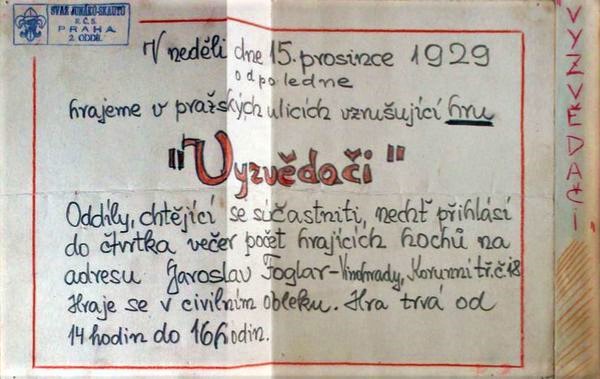 SVAZ JUNÁKŮ-SKAUTŮ
R.Č.S.
PRAHA
2. ODDÍL.
V neděli dne 15. prosince 1929
odpoledne
hrajeme v pražských ulicích vzrušující hru
"Vyzvědači"
Oddíly, chtějící se súčastniti, nechť přihlásí
do čtvrtka večer počet hrajících hochů na
adresu Jaroslav Foglar-Vinohrady, Korunní tř.č.18
Hraje se v civilním obleku. Hra trvá od
14 hodin do 16 hodin.
VYZVĚDAČI